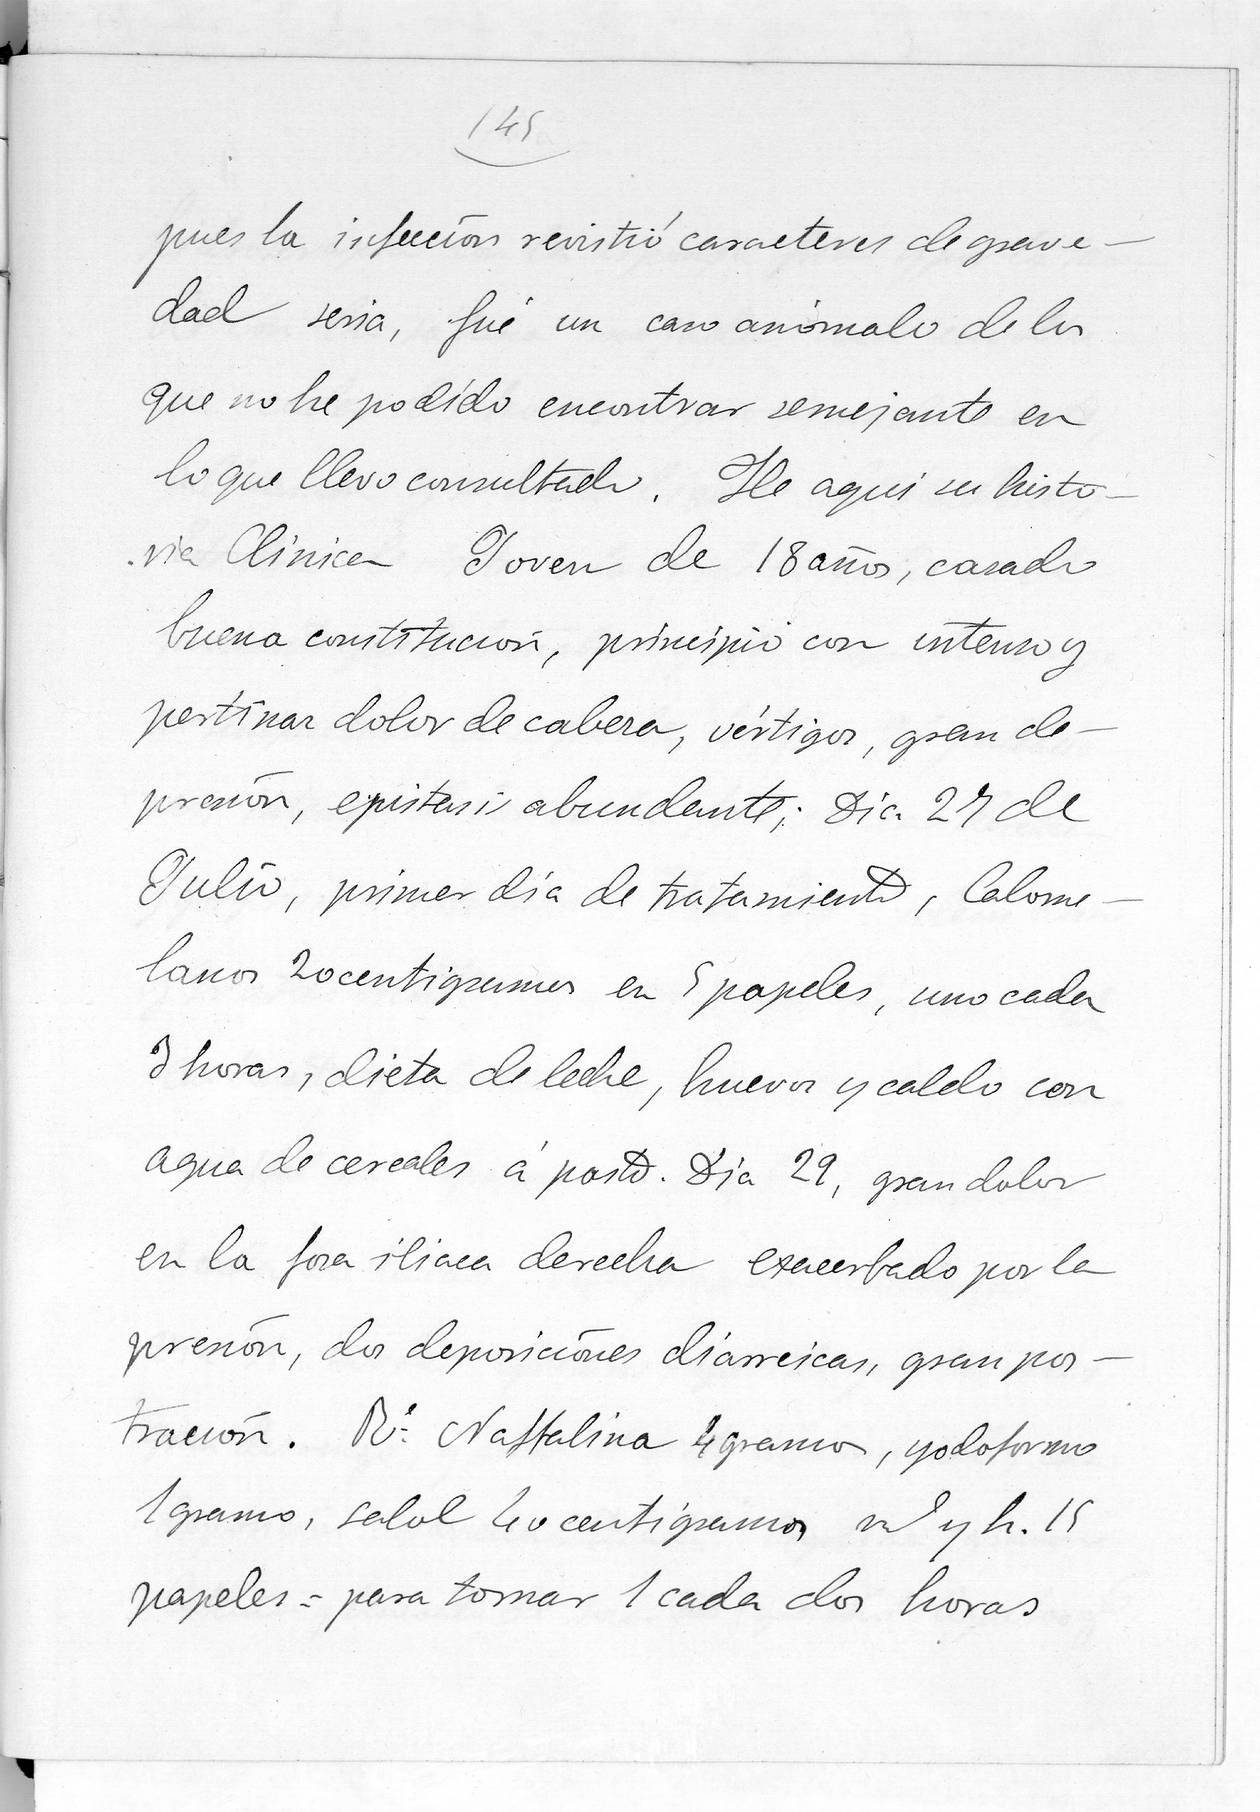 145
pues la infección revistió caracteres de grave-
dad seria, fué un caso anómalo de los
que no he podido encontrar semejante en
lo que llevo consultado. He aqui su histo-
ria Clínica Joven de 18 años, casado
buena constitución, principió con intenso y
pertinaz dolor de cabeza, vértigos, gran de-
presión, epistasis abundante; Dia 27 de
Julio, primer día de tratamiento, Calome-
lanos 20 centigramos en 5 papeles, uno cada
3 horas, dieta de leche, huevos y caldo con
agua de cereales á pasto. Día 29, gran dolor
en la fosa iliaca derecha exacerbado por la
presión, dos deposiciones diarreicas, gran pos-
tración. Re. Naftalina 4 gramos, yodoformo
1 gramo, salol 40 centigramos y h. 15
papeles = para tomar 1 cada dos horas